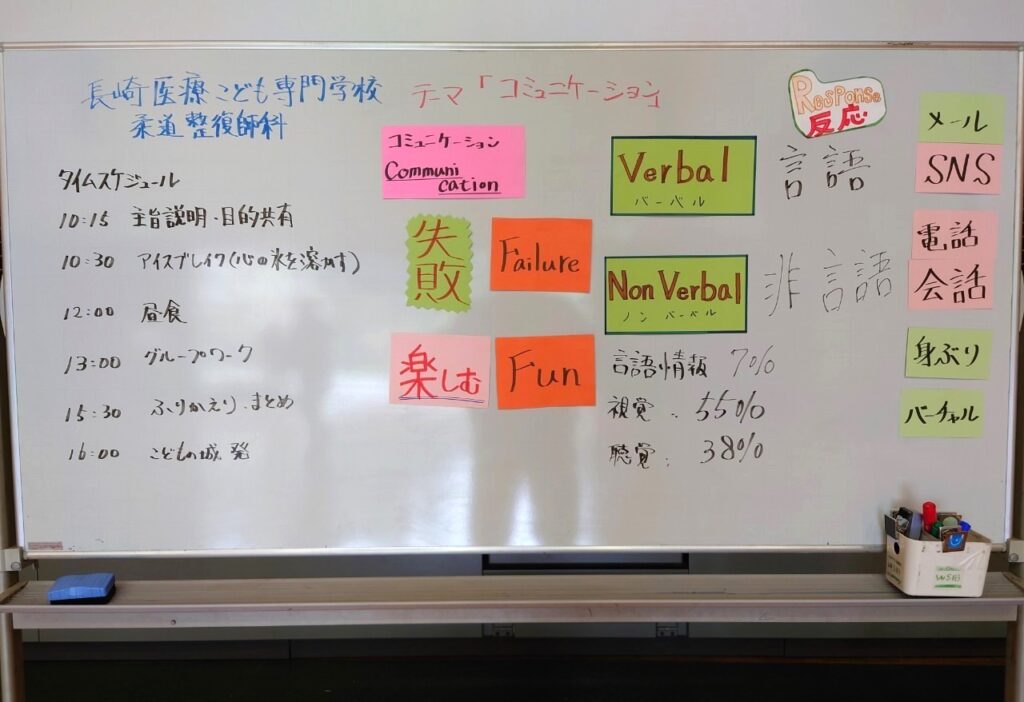 長崎医療こども専門学校
柔道整復師科
テーマ「コミュニケーション」
タイムスケジュール
10:15 主旨説明・目的共有
10:30 アイスブレイク(心の氷を溶かす)
12:00 昼食
13:00 グループワーク
15:30 ふりかえり・まとめ
16:00 こどもの城 発
コミュニケーション
Communi
cation
失敗
Failure
楽しむ
Fun
Verbal
バーバル
言語
Non Verbal
ノンバーバル
非言語
言語情報 7%
視覚: 55%
聴覚: 38%
Response
反応
メール
SNS
電話
会話
身ぶり
バーチャル